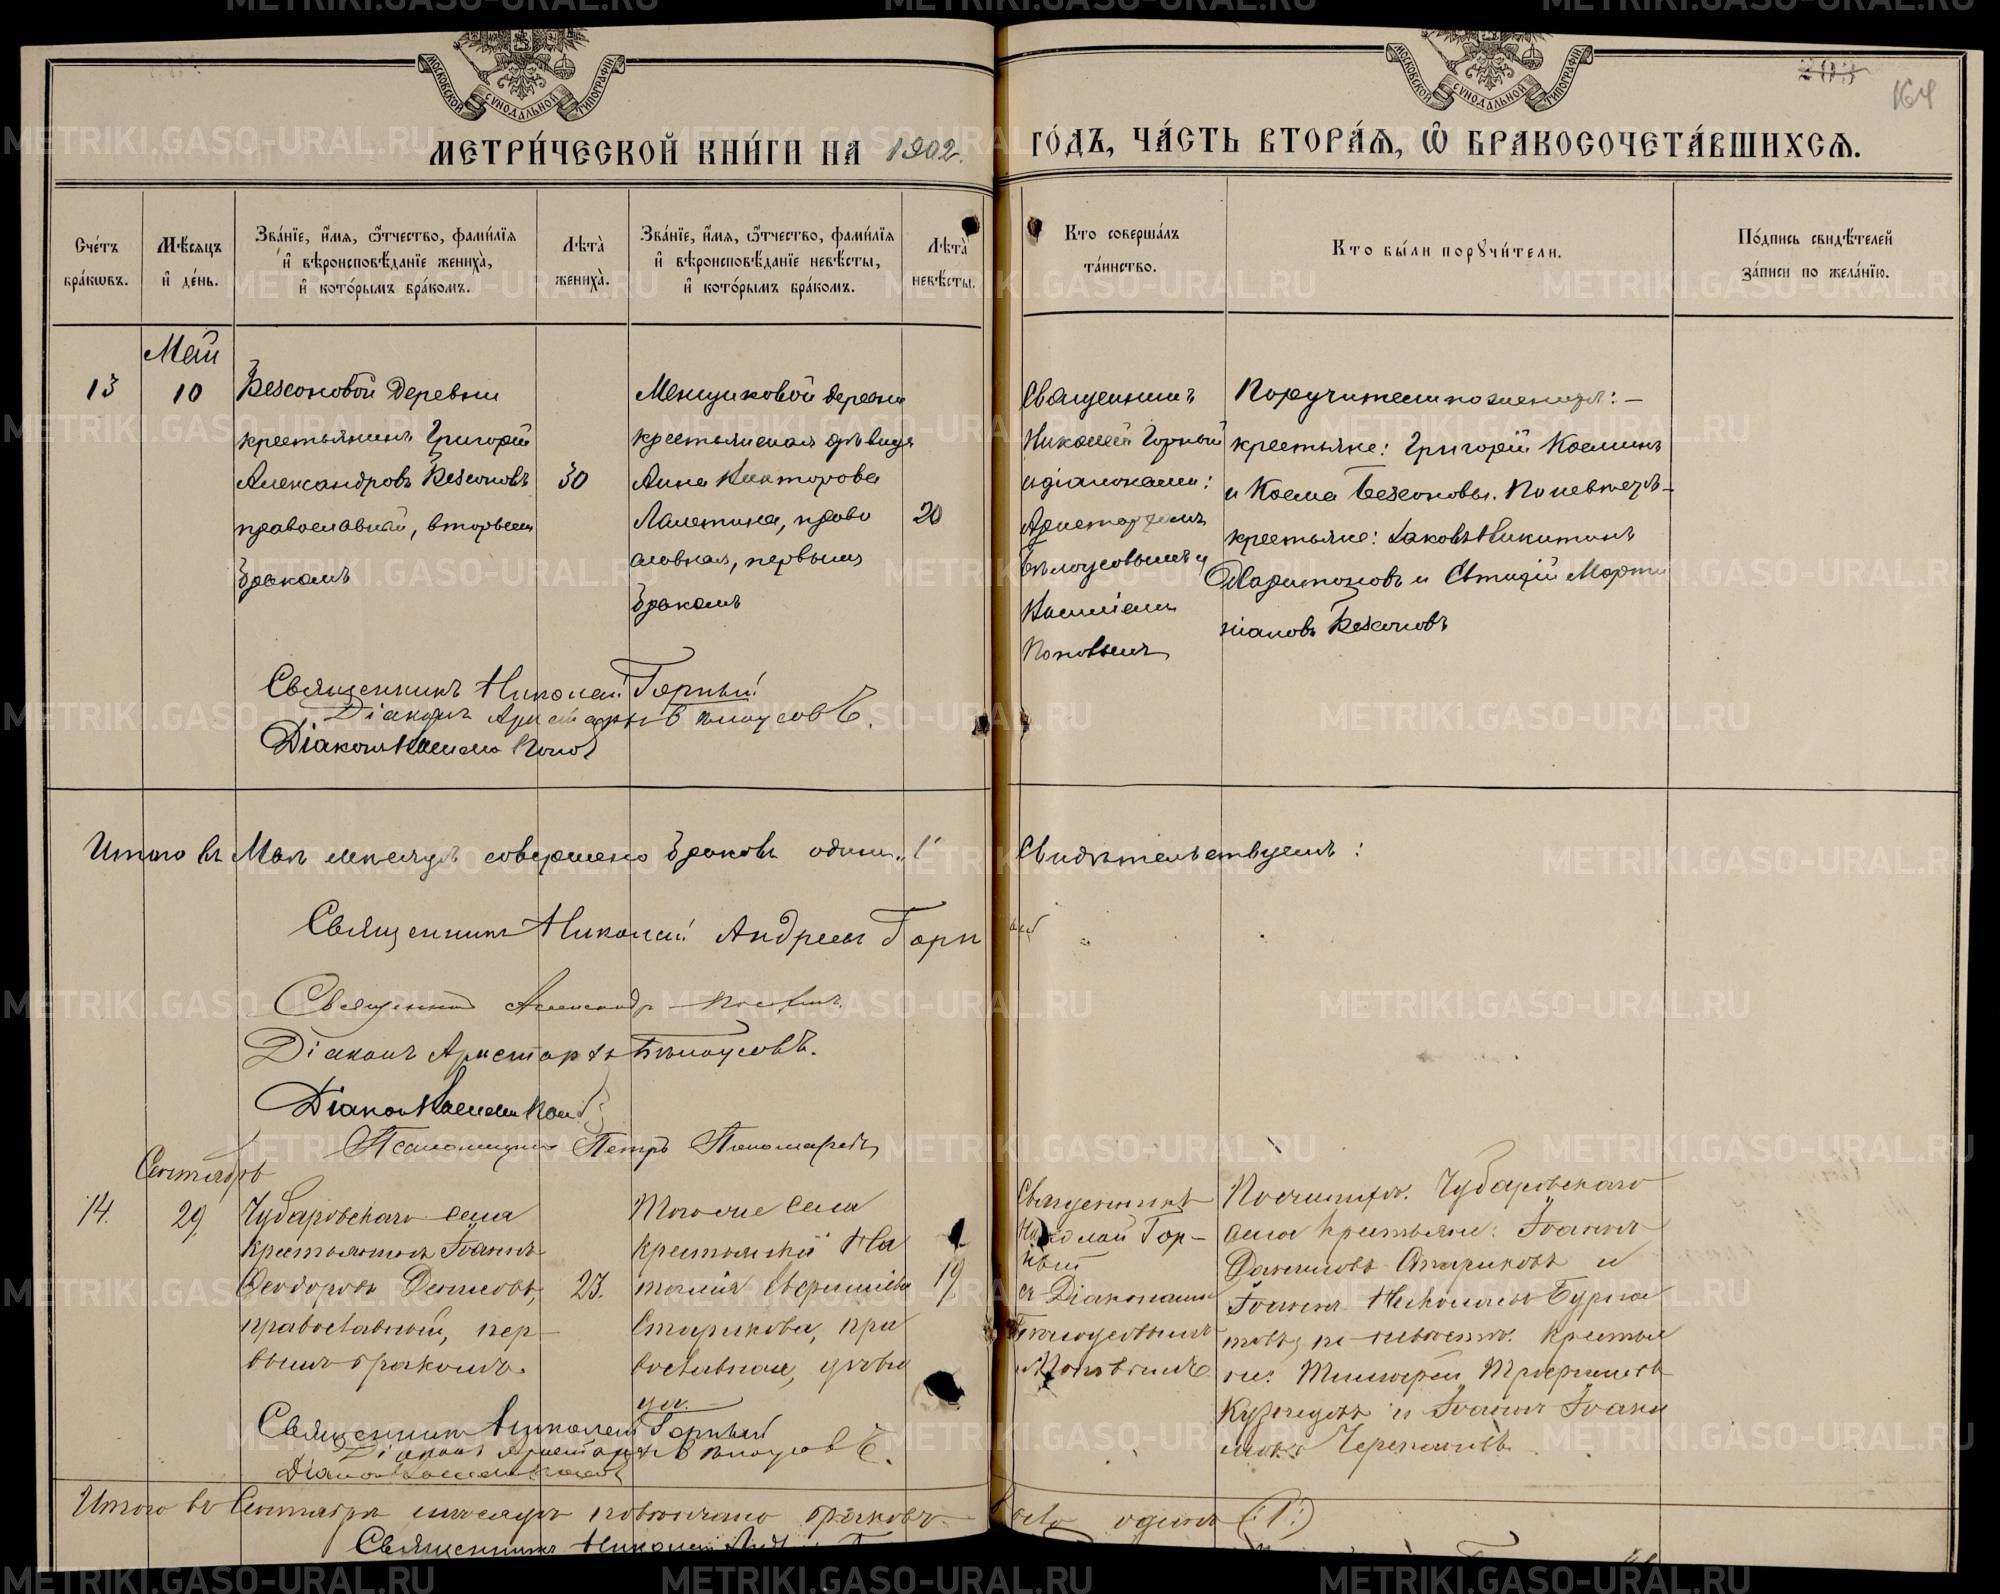 МОСКОВСКОЙ СѴНОДАЛЬНОЙ ТИПОГРАФІИ
МОСКОВСКОЙ СѴНОДАЛЬНОЙ ТИПОГРАФІИ
164
МЕТРИ́ЧЕСКОЙ КНИ́ГИ НА 1902.
ГО́ДЪ, ЧА́СТЬ ВТОРА́Я, Ѽ БРАКОСОЧЕТА́ВШИХСЯ.
Сче́тъ бра́кѡвъ.
Мѣ́сяцъ и҆ де́нь.
Зва́нїе, и҆́мя, ѻ҆́тчество, фами́лїя и҆ вѣроисповѣ́данїе жениха̀, и҆ кото́рымъ бра́комъ.
Лѣта̀ жениха̀.
Зва́нїе, и҆́мя, ѻ҆́тчество, фами́лїя и҆ вѣроисповѣ́данїе невѣ́сты, и҆ кото́рымъ бра́комъ.
Лѣта̀ невѣ́сты.
Кто соверша́лъ та́инство.
Кто бы́ли порꙋчи́тели.
По́дпись свидѣ́телей за́писи по жела́нїю.
Май
13
10
Безсоновой деревни
крестьянинъ Григорій
Александровъ Безсоновъ
православный, вторымъ
бракомъ
30
деревни
крестьянская дѣвица
Анна Викторова
Лалетина, право
славная, первымъ
бракомъ
20
Священникъ
Николай Горный
и діаконами:
Аристархомъ
Бѣлоусовымъ и
Поповымъ
Поручители по женихѣ: —
крестьяне: Григорій Косминъ
и Косма Безсоновы. По невѣстѣ —
крестьяне: Іаковъ Никитинъ
Харитоновъ и Марти
ніановъ Безсоновъ
Священникъ Николай Горный
Діаконъ Аристархъ Бѣлоусовъ.
Діаконъ Попов
Итого въ Маѣ мѣсяцѣ совершено браковъ одинъ „1"
Свидѣтельствуемъ:
Священникъ Николай Андреевъ Горный
Священникъ Александръ
Діаконъ Аристархъ Бѣлоусовъ.
Діаконъ Попов
Псаломщикъ Петръ Пономаревъ
Сентябрь
14.
29
Чубаровскаго села
крестьянинъ Іоаннъ
Ѳеодоровъ Денисовъ,
православный, пер-
вымъ бракомъ.
23.
Того же села
крестьянка На
талія
Старикова, пра
вославная, дѣви
ца.
19
Священникъ
Николай Гор-
ный
съ Діаконами
Бѣлоусовымъ
и Поповымъ
По женихѣ: Чубаровскаго
села крестьяне: Іоаннъ
Даниловъ Стариковъ и
Іоаннъ Николаевъ
по невѣстѣ: крестья
не: Тимофей
Кузнецовъ и Іоаннъ Іоанн
овъ Черепановъ
Священникъ Николай Горный
Діаконъ Аристархъ Бѣлоусовъ.
Діаконъ Попов
Итого въ Сентябрѣ мѣсяцѣ повѣнчано браковъ всего одинъ (:1:)
Священникъ Николай